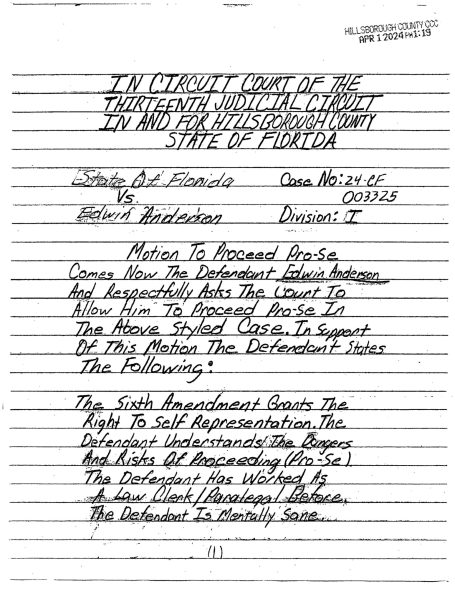 HILLSBOROUGH COUNTY CCC
APR 1 2024 PM1:19
IN CIRCUIT COURT OF THE
THIRTEENTH JUDICIAL CIRCUIT
IN AND FOR HILLSBOROUGH COUNTY
STATE OF FLORIDA
State Of Florida Case No: 24-CF
Vs. 003325
Edwin Anderson Division: I
Motion To Proceed Pro-Se
Comes Now The Defendant Edwin Anderson
And Respectfully Asks The Court To
Allow Him To Proceed Pro-Se In
The Above Styled Case. In Support
Of This Motion The Defendant States
The Following:
The Sixth Amendment Grants The
Right To Self Representation. The
Defendant Understands The Dangers
And Risks Of Proceeding (Pro-Se)
The Defendant Has Worked As
A Law Clerk/Paralegal Before.
The Defendant Is Mentally Sane.
(1)